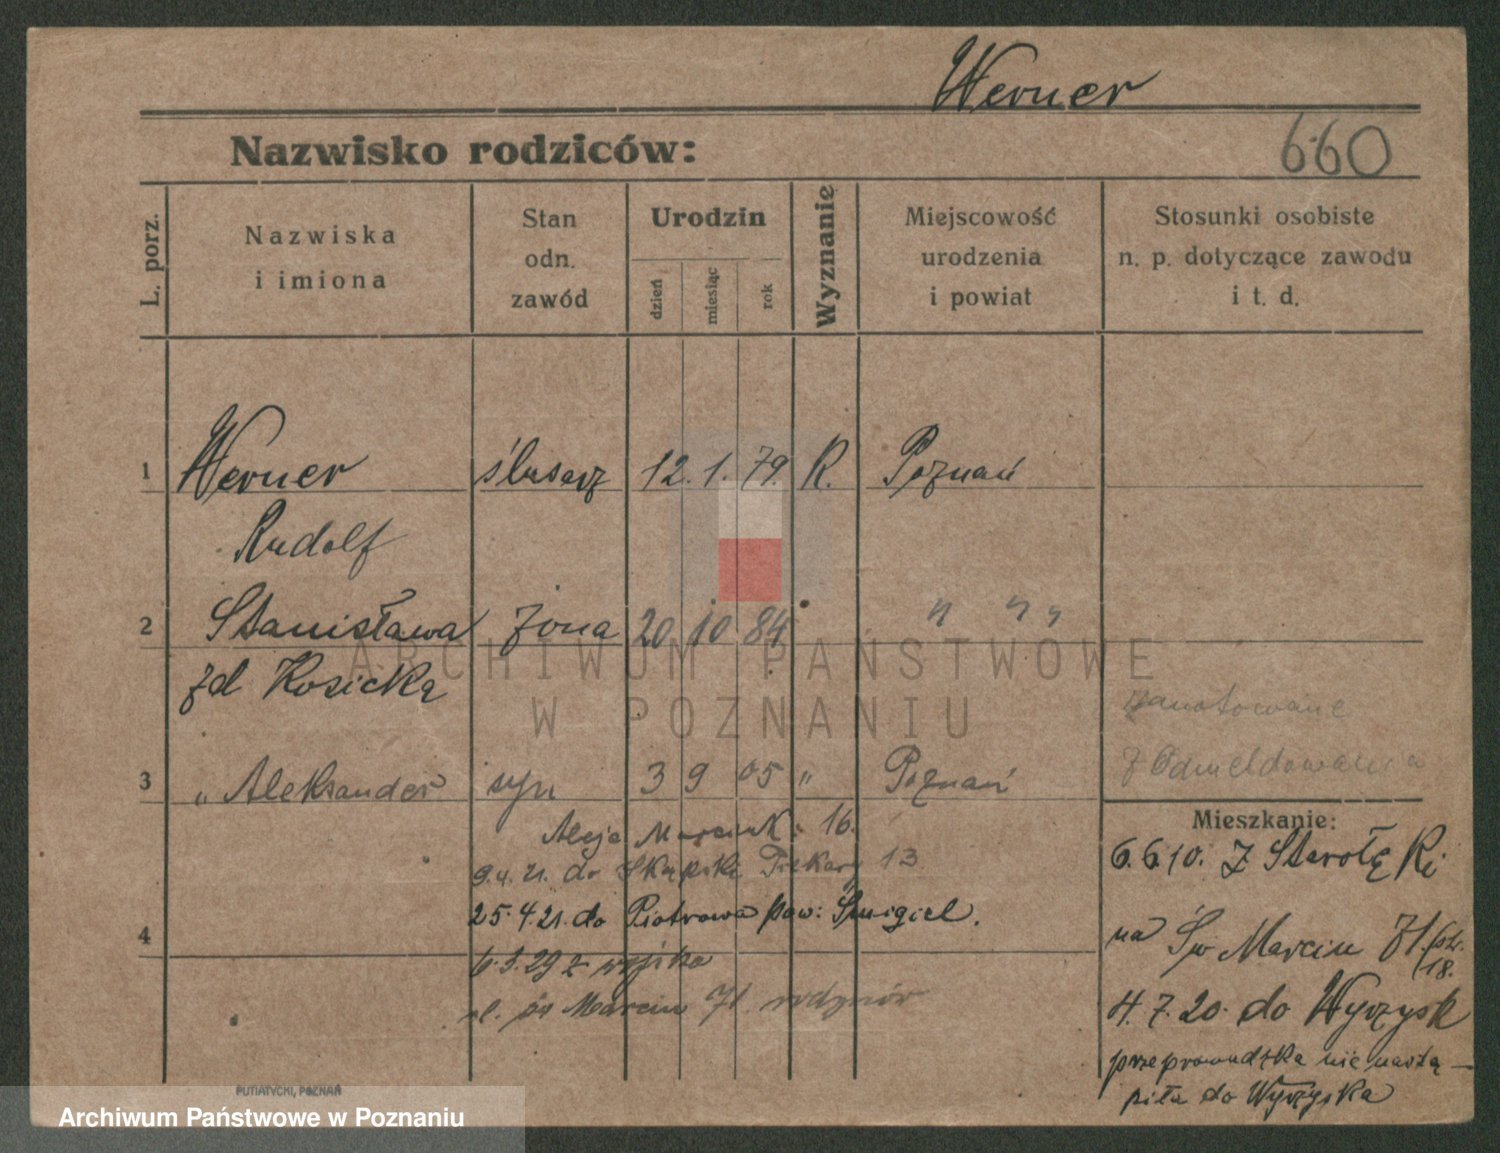 Werner
660
Nazwisko rodziców:
L. porz.
Nazwiska i imiona
Stan odn. zawód
Urodzin
dzień
miesiąc
rok
Wyznanie
Miejscowość urodzenia i powiat
Stosunki osobiste n. p. dotyczące zawodu i t. d.
1 Werner ślusarz 12. 1. 79. R. Poznań
Rudolf
2 Stanisława żona 20 10 84 " " "
zd Kosicka
ARCHIWUM PAŃSTWOWE
W POZNANIU
zanotowane
z Odmeldowania
3 " Aleksander syn 3 9 05 " Poznań
Aleje Marcink. 16.
9.4.21. do Piekary 13
25.4.21. do Piotrowa pow: Śmigiel.
4
6.3.29 z wojska
ul. św Marcin 71. rodziców
Mieszkanie:
6.6.10. z Starołęki
na Św Marcin 71.
18.
4.7.20. do Wyrzysk
przeprowadzka nie nastą-
piła do Wyrzyska
PUTIATYCKI, POZNAŃ
Archiwum Państwowe w Poznaniu